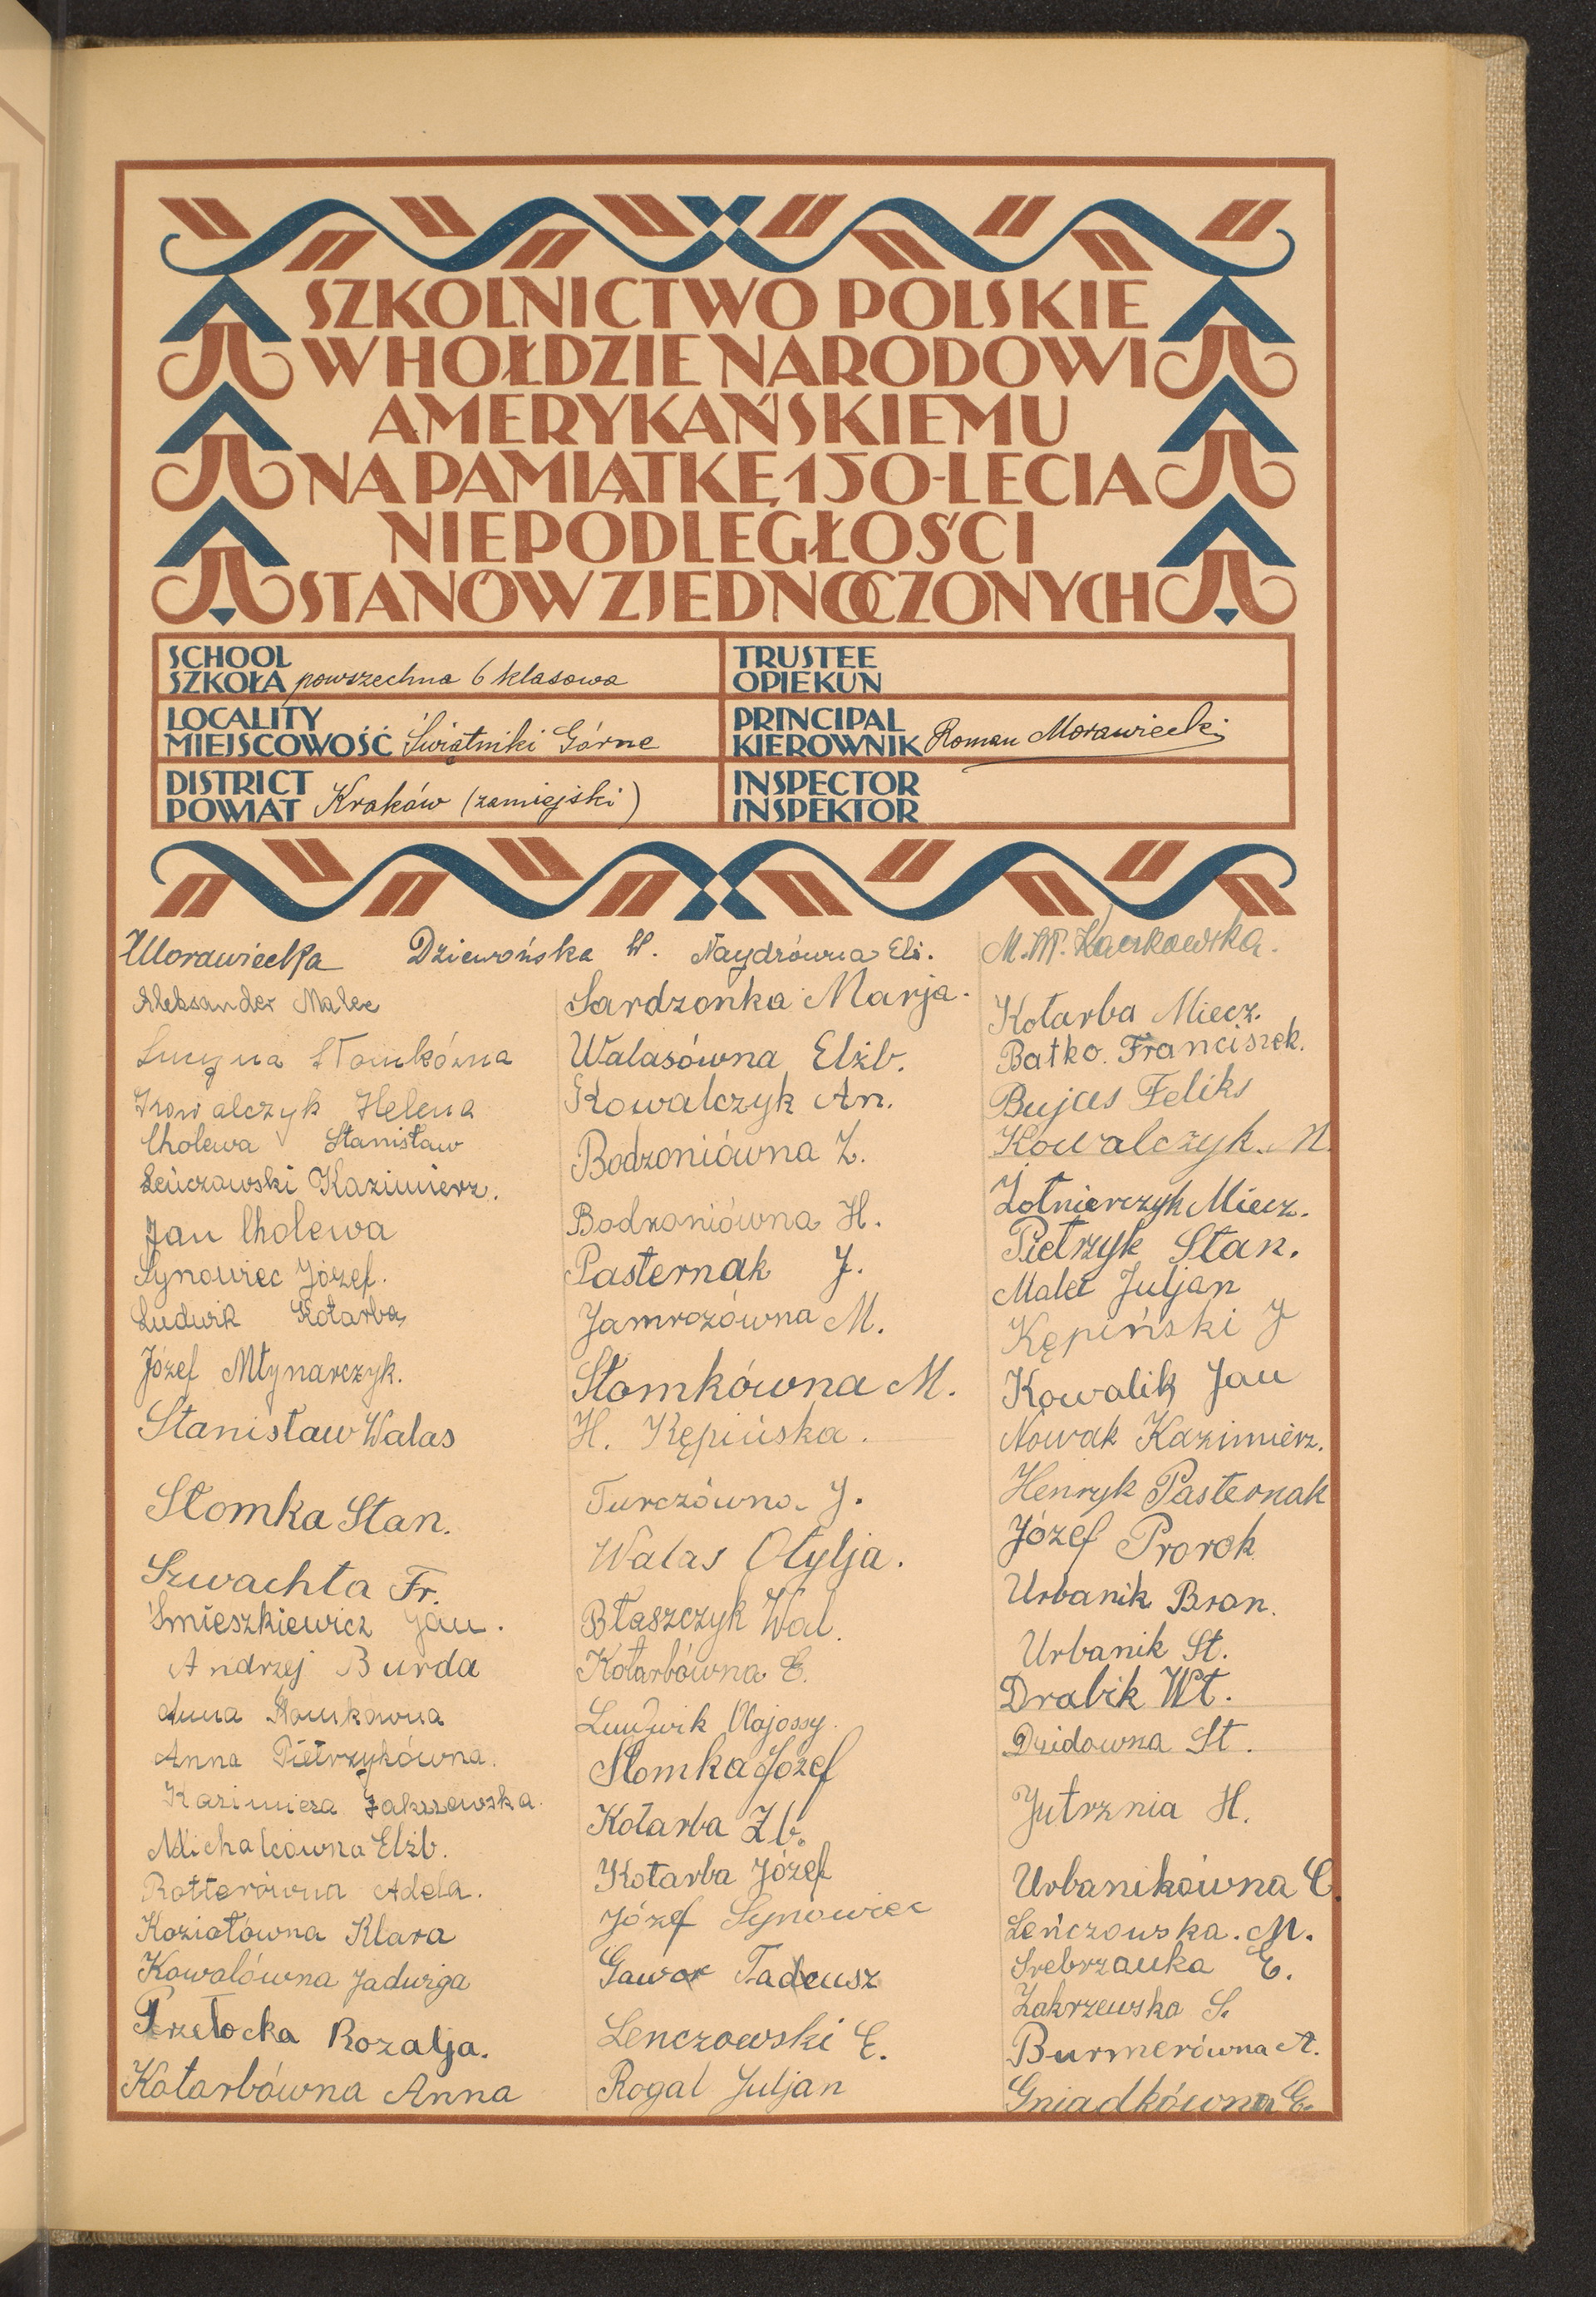 SZKOLNICTWO POLSKIE
W HOŁDZIE NARODOWI
AMERYKAŃSKIEMU
NA PAMIĄTKĘ 150-LECIA
NIEPODLEGŁOŚCI
STANÓW ZJEDNOCZONYCH
SCHOOL
SZKOŁA powszechna 6 klasowa
LOCALITY
MIEJSCOWOŚĆ Świątniki Górne
DISTRICT
POWIAT Kraków (zamiejski)
TRUSTEE
OPIEKUN
PRINCIPAL
KIEROWNIK Roman Morawiecki
INSPECTOR
INSPEKTOR
Morawiecka Dziewońska W. Naydrówna Eli. M.M. Kaczkowska.
Aleksander Malec
Lucyna Słomkówna
Kowalczyk Helena
Cholewa Stanisław
Leńczowski Kazimierz.
Jan Cholewa
Synowiec Józef.
Ludwik Kotarba
Józef Młynarczyk.
Stanisław Walas
Słomka Stan.
Szwachta Fr.
Śmieszkiewicz Jan.
Andrzej Burda
Anna Słomkówna
Anna Pietrzykówna.
Kazimiera Zakrzewska.
Michalcówna Elżb.
Rotterówna Adela.
Koziołówna Klara
Kowalówna Jadwiga
Przetocka Rozalja.
Kotarbówna Anna
Sardzonka Marja.
Walasówna Elżb.
Kowalczyk An.
Bodzoniówna Z.
Bodzoniówna H.
Pasternak J.
Jamrozówna M.
Słomkówna M.
H. Kępińska.
Turczówna J.
Walas Otylja.
Błaszczyk Wal.
Kotarbówna E.
Ludwik Olajossy.
Słomka Józef
Kotarba Zb.
Kotarba Józef
Józef Synowiec
Gawor Tadeusz
Lenczowski E.
Rogal Juljan
Kotarba Miecz.
Batko. Franciszek.
Bujas Feliks
Kowalczyk. M.
Żołnierczyk Miecz.
Pietrzyk Stan.
Malec Juljan
Kępiński J
Kowalik Jan
Nowak Kazimierz.
Henryk Pasternak
Józef Prorok
Urbanik Bron.
Urbanik St.
Drabik Wł.
Dzidówna St.
Jutrznia H.
Urbanikówna C.
Leńczowska. M.
Srebrzanka E.
Zakrzewska S.
Burmerówna A.
Gniadkówna G.